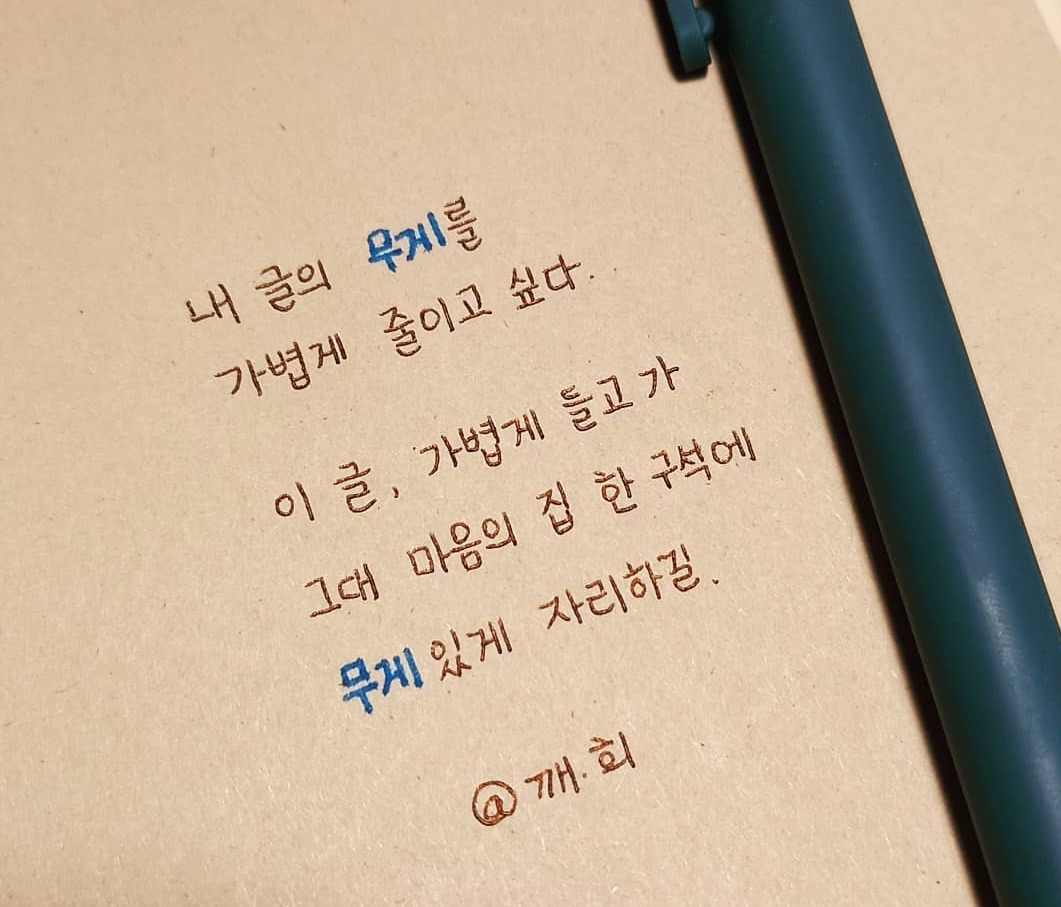 내 글의 무게를
가볍게 줄이고 싶다.
이 글, 가볍게 들고 가
그대 마음의 집 한 구석에
무게있게 자리하길.
@깨.회